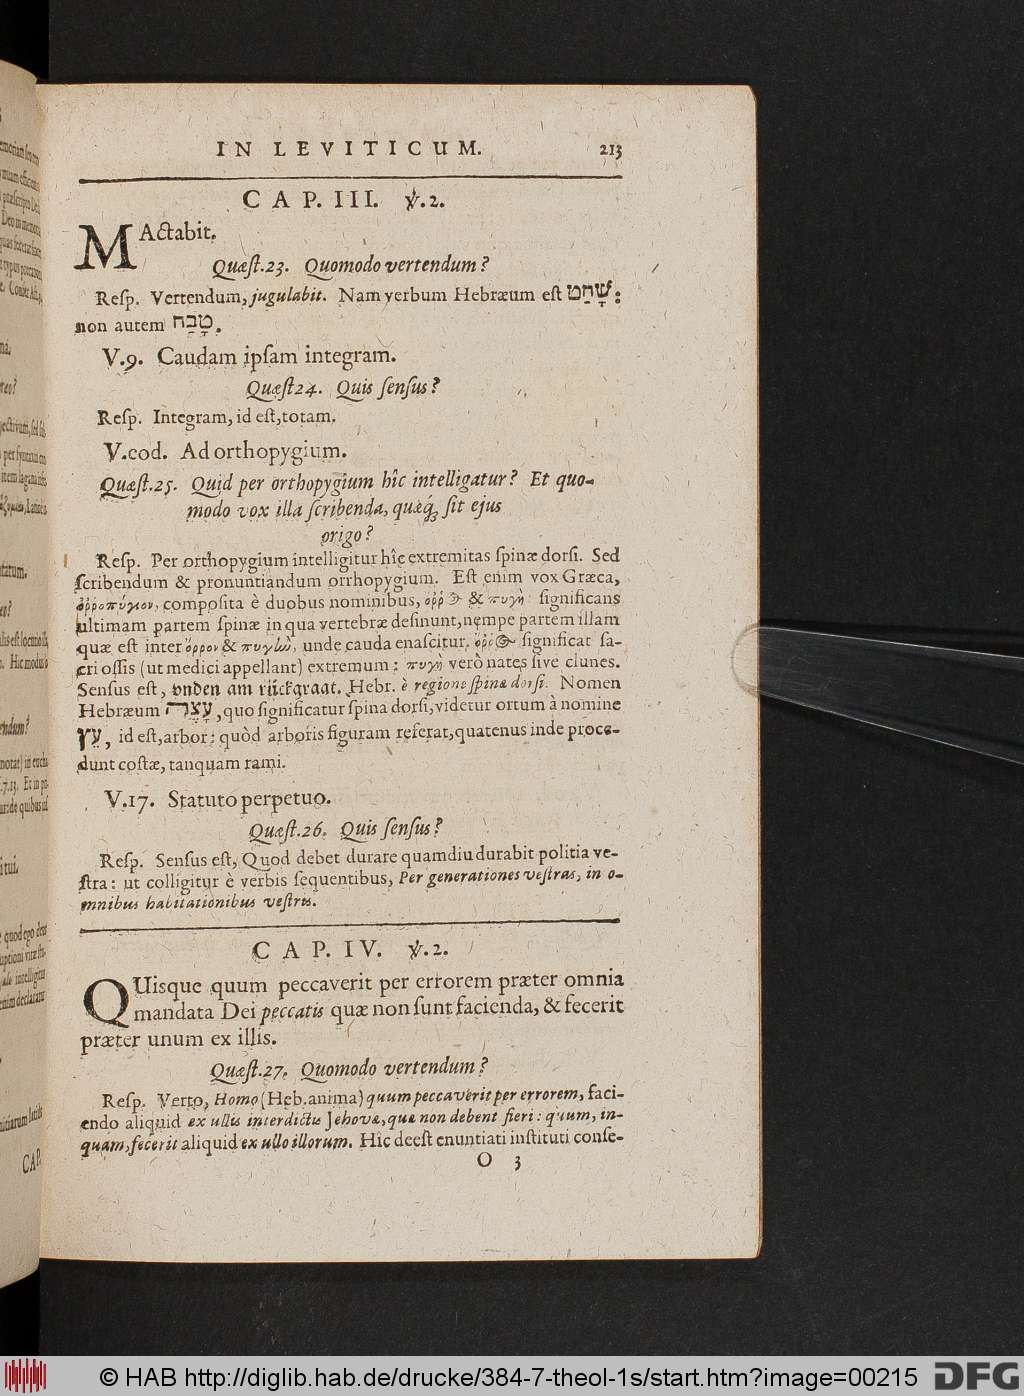 IN LEVITICUM. 213
CAP. III. ℣.2.
MActabit.
Quæſt.23. Quomodo vertendum?
Reſp. Vertendum, jugulabit. Nam verbum Hebræum eſt שָׁחַט:
non autem טָבַח.
V.9. Caudam ipſam integram.
Quæſt24. Quis ſenſus?
Reſp. Integram, id eſt, totam.
V.eod. Ad orthopygium.
Quæſt.25. Quid per orthopygium hîc intelligatur? Et quo-
modo vox illa ſcribenda, quæq́; ſit ejus
origo?
Reſp. Per orthopygium intelligitur hîc extremitas ſpinæ dorſi. Sed
ſcribendum & pronuntiandum orrhopygium. Eſt enim vox Græca,
ὀῤῥοπύγιον, compoſita è duobus nominibus, ὀῤῥος & πυγὴ ſignificans
ultimam partem ſpinæ in qua vertebræ deſinunt, nempe partem illam
quæ eſt inter ὄρρον & πυγὼ, unde cauda enaſcitur. ὀῤῥος ſignificat ſa-
cri oſſis (ut medici appellant) extremum: πυγὴ verò nates ſive clunes.
Senſus eſt, vnden am rückgraat. Hebr. è regione ſpinæ dorſi. Nomen
Hebræum עָצֶה, quo ſignificatur ſpina dorſi, videtur ortum à nomine
עֵץ, id eſt, arbor: quòd arboris figuram referat, quatenus inde proce-
dunt coſtæ, tanquam rami.
V.17. Statuto perpetuo.
Quæſt.26. Quis ſenſus?
Reſp. Senſus eſt, Quod debet durare quamdiu durabit politia ve-
ſtra: ut colligitur è verbis ſequentibus, Per generationes veſtras, in o-
mnibus habitationibus veſtris.
CAP. IV. ℣.2.
QUisque quum peccaverit per errorem præter omnia
mandata Dei peccatis quæ non ſunt facienda, & fecerit
præter unum ex illis.
Quæſt.27. Quomodo vertendum?
Reſp. Verto, Homo (Heb. anima) quum peccaverit per errorem, faci-
endo aliquid ex ullis interdictis Jehovæ, quæ non debent fieri: quum, in-
quam, fecerit aliquid ex ullo illorum. Hic deeſt enuntiati inſtituti conſe-
O 3
CAP.
© HAB http://diglib.hab.de/drucke/384-7-theol-1s/start.htm?image=00215
DFG